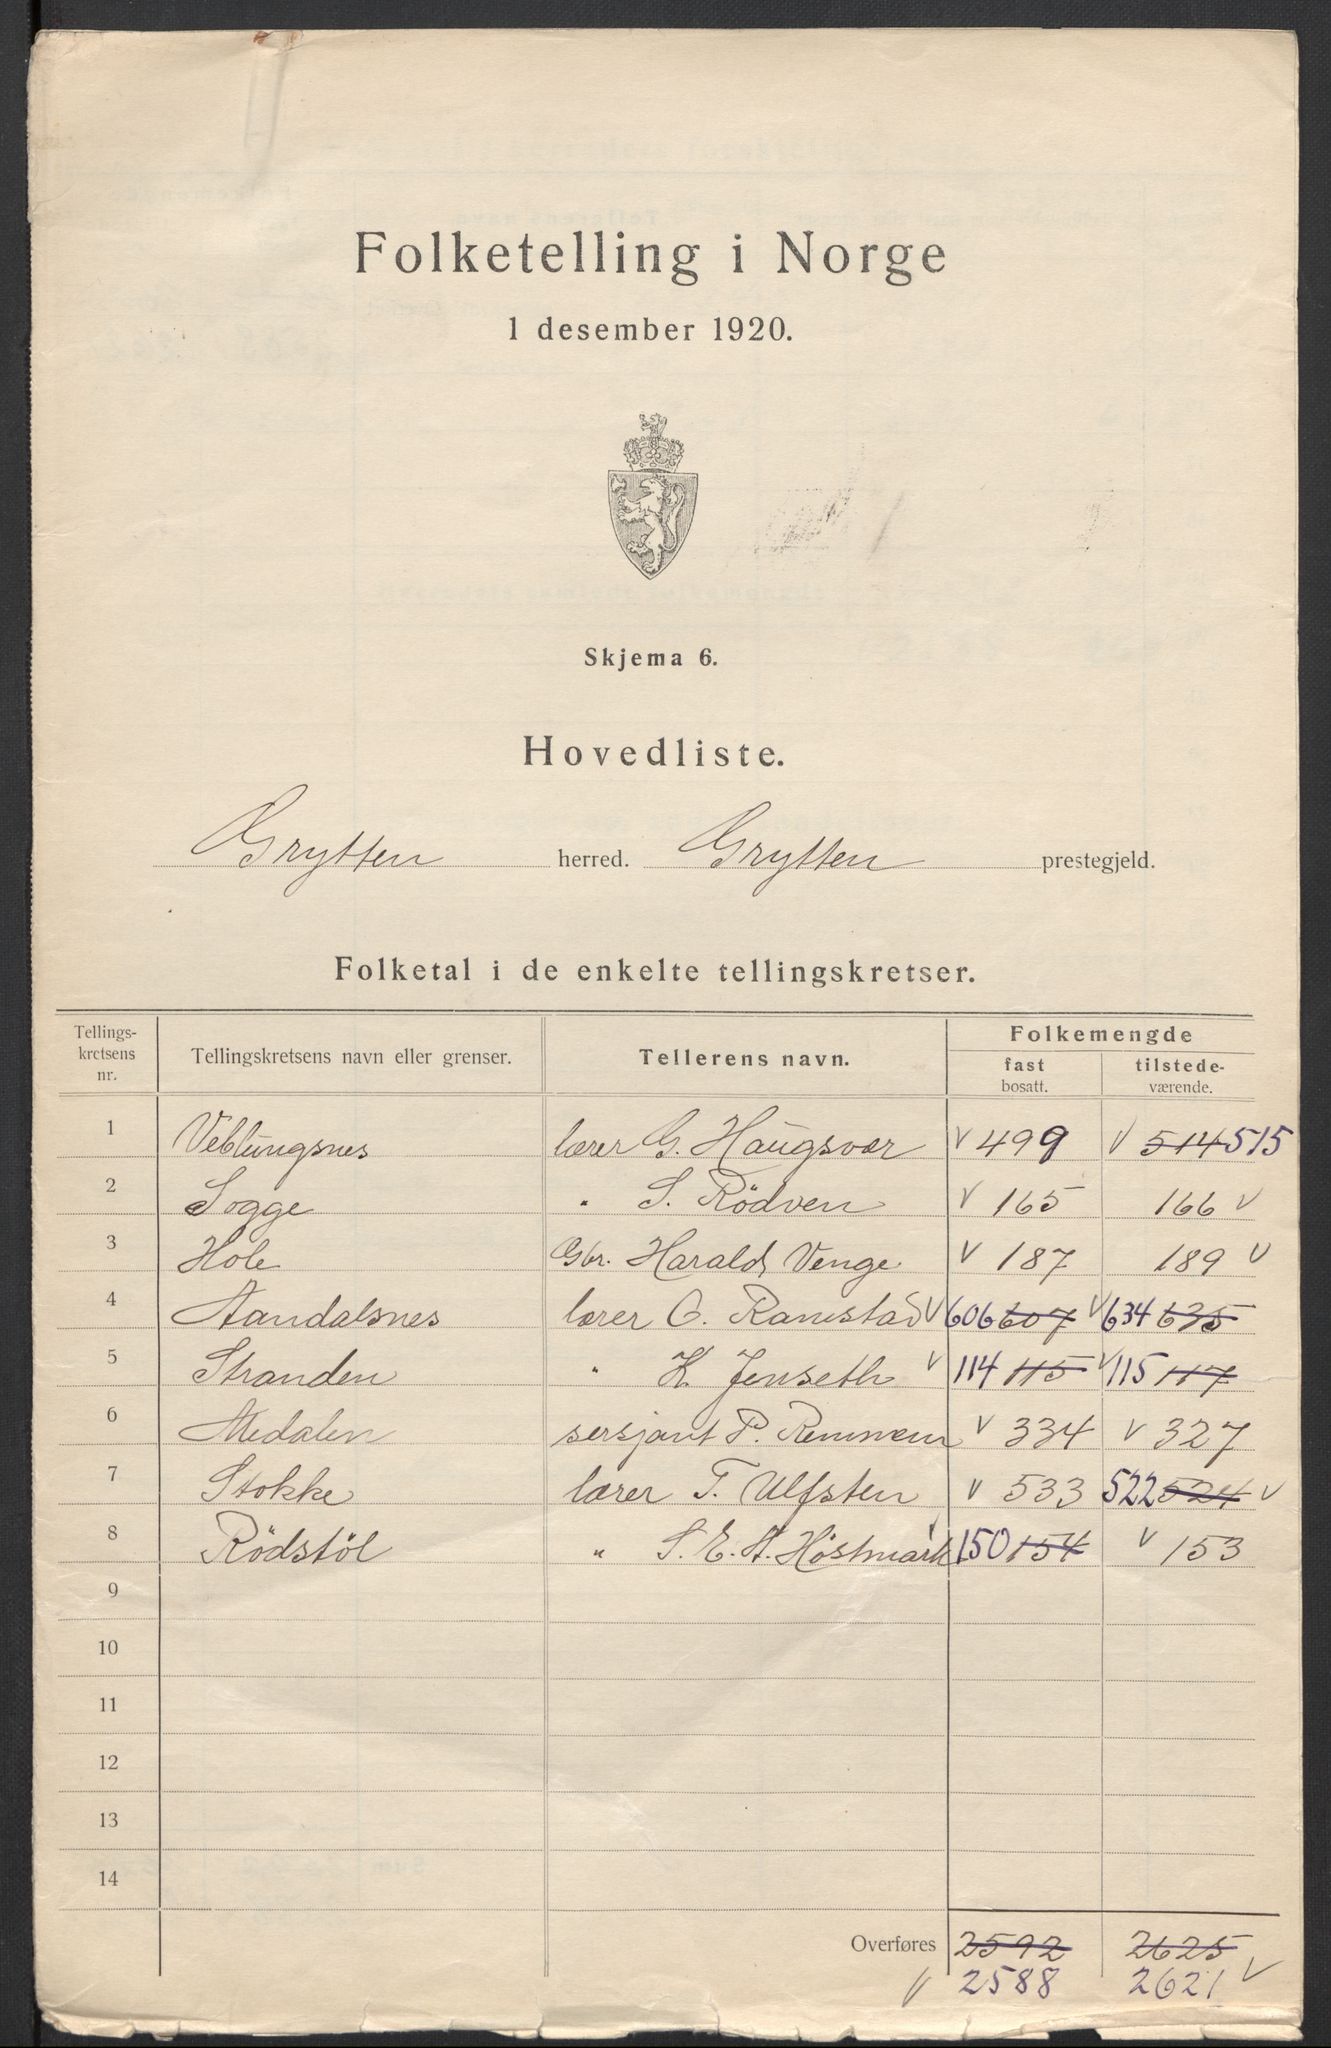 Folketelling i Norge
1 desember 1920.
Skjema 6.
Hovedliste.
Grytten herred. Grytten prestegjeld.
Folketal i de enkelte tellingskretser.
Tellings-kretsens nr. Tellingskretsens navn eller grenser. Tellerens navn. Folkemengde
fast bosatt. tilstede-værende.
1 Veblungsnes lærer G. Haugsvær √ 499 √ 514 515
2 Sogge " S. Rödven √ 165 166 √
3 Hole Gbr. Harald Venge √ 187 189 √
4 Aandalsnes lærer O. Ramstad √ 606 607 √ 634 635
5 Stranden " K. Jenseth √ 114 115 √ 115 117
6 Medalen sersjant P. Remmem √ 334 √ 327
7 Stokke lærer T. Ulfsten √ 533 522 524 √
8 Rödstöl " S. E. A. Höstmark √ 150 154 √ 153
9
10
11
12
13
14
Overføres 2592 2625
√ 2588 2621 √